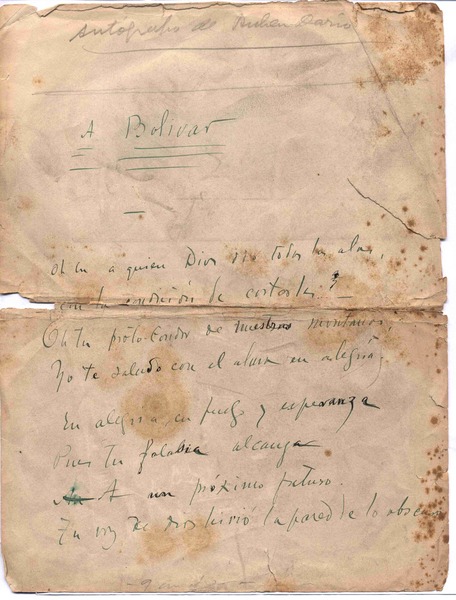 Autógrafo de Ruben Dario
A Bolivar
Oh tu a quien Dios dio todas las alas,
con la condición de cortarlas?
Oh tu proto-Condor de nuestras montañas,
Yo te saludo con el alma en alegria,
En alegria, en fuego y esperanza
Pues tu palabra alcanza
A un próximo futuro.
Tu voz de dios hirió la pared de lo obscuro